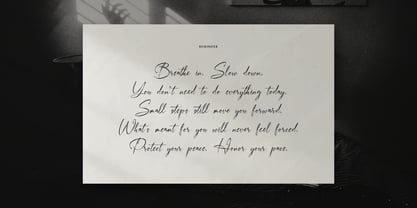 REMINDER
Breathe in. Slow down.
You don't need to do everything today.
Small steps still move you forward.
What's meant for you will never feel forced.
Protect your peace. Honor your pace.